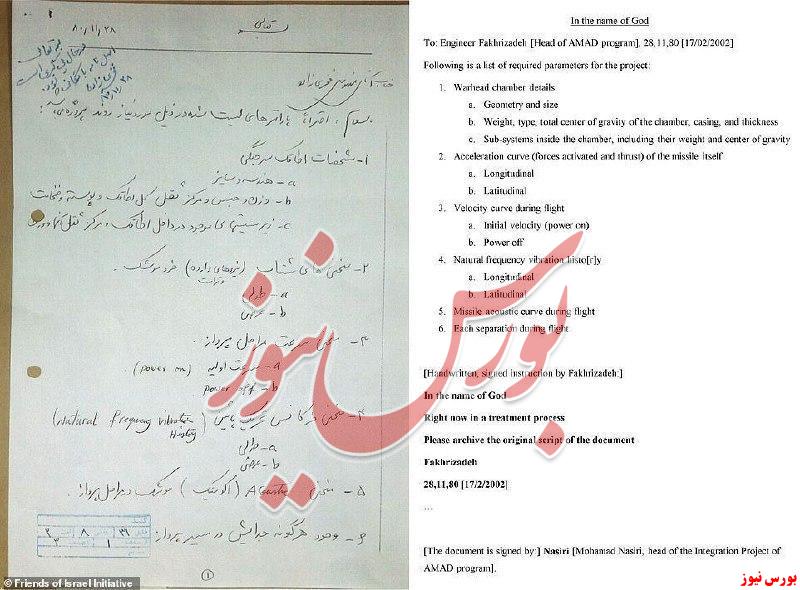 ۸۰/۱۱/۲۸
۱- مشخصات اطاقک سرجنگی
a- هندسه و سایز
b- وزن و جنس و مرکز ثقل کل اطاقک و پوسته و ضخامت
c- زیر سیستمهای موجود در داخل اطاقک و مرکز ثقل آنها و وزن
۲- منحنی های شتاب (نیروهای وارده) خود موشک.
a- طولی
b- عرضی
۳- منحنی سرعت مراحل پرواز.
a- سرعت اولیه (power on)
b- power off
۴- منحنی فرکانس (Natural frequency vibration History)
a- طولی
b- عرضی
۵- منحنی Acoustic (آکوستیک) موشک در مراحل پرواز.
۶- وجود هرگونه جدایش در مسیر پرواز
1
© Friends of Israel Initiative
In the name of God
To: Engineer Fakhrizadeh [Head of AMAD program], 28,11,80 [17/02/2002]
Following is a list of required parameters for the project:
1. Warhead chamber details
a. Geometry and size
b. Weight, type, total center of gravity of the chamber, casing, and thickness
c. Sub-systems inside the chamber, including their weight and center of gravity
2. Acceleration curve (forces activated and thrust) of the missile itself
a. Longitudinal
b. Latitudinal
3. Velocity curve during flight
a. Initial velocity (power on)
b. Power off
4. Natural frequency vibration histo[r]y
a. Longitudinal
b. Latitudinal
5. Missile acoustic curve during flight
6. Each separation during flight
[Handwritten, signed instruction by Fakhrizadeh:]
In the name of God
Right now in a treatment process
Please archive the original script of the document
Fakhrizadeh
28,11,80 [17/2/2002]
…
[The document is signed by:] Nasiri [Mohamad Nasiri, head of the Integration Project of
AMAD program].
بورس نیوز
بورس نیوز